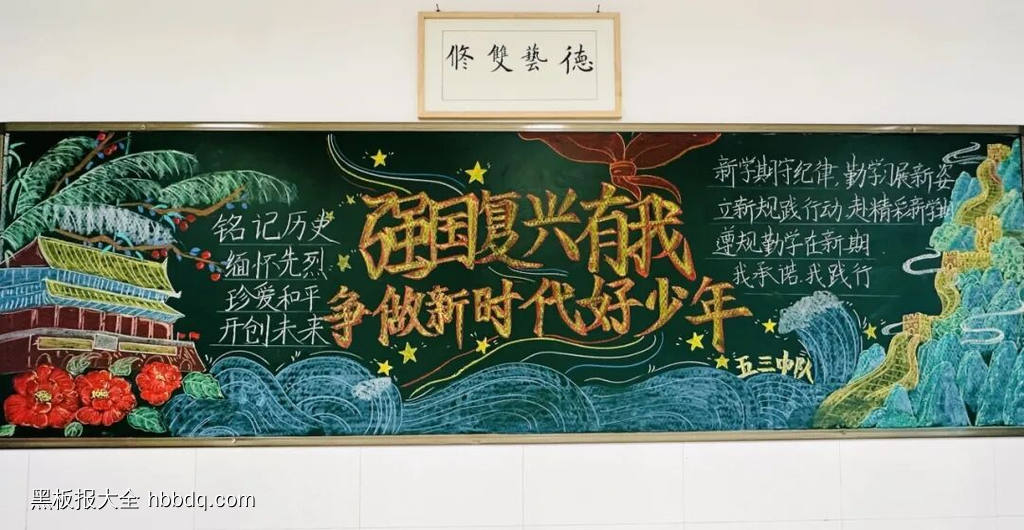 德藝雙修
铭记历史
缅怀先烈
珍爱和平
开创未来
强国复兴有我
争做新时代好少年
新学期守纪律,勤学习展新姿
立新规践行动,赴精彩新学期
遵规勤学在新期
我承诺.我践行
五三中队
黑板报大全 hbbdq.com